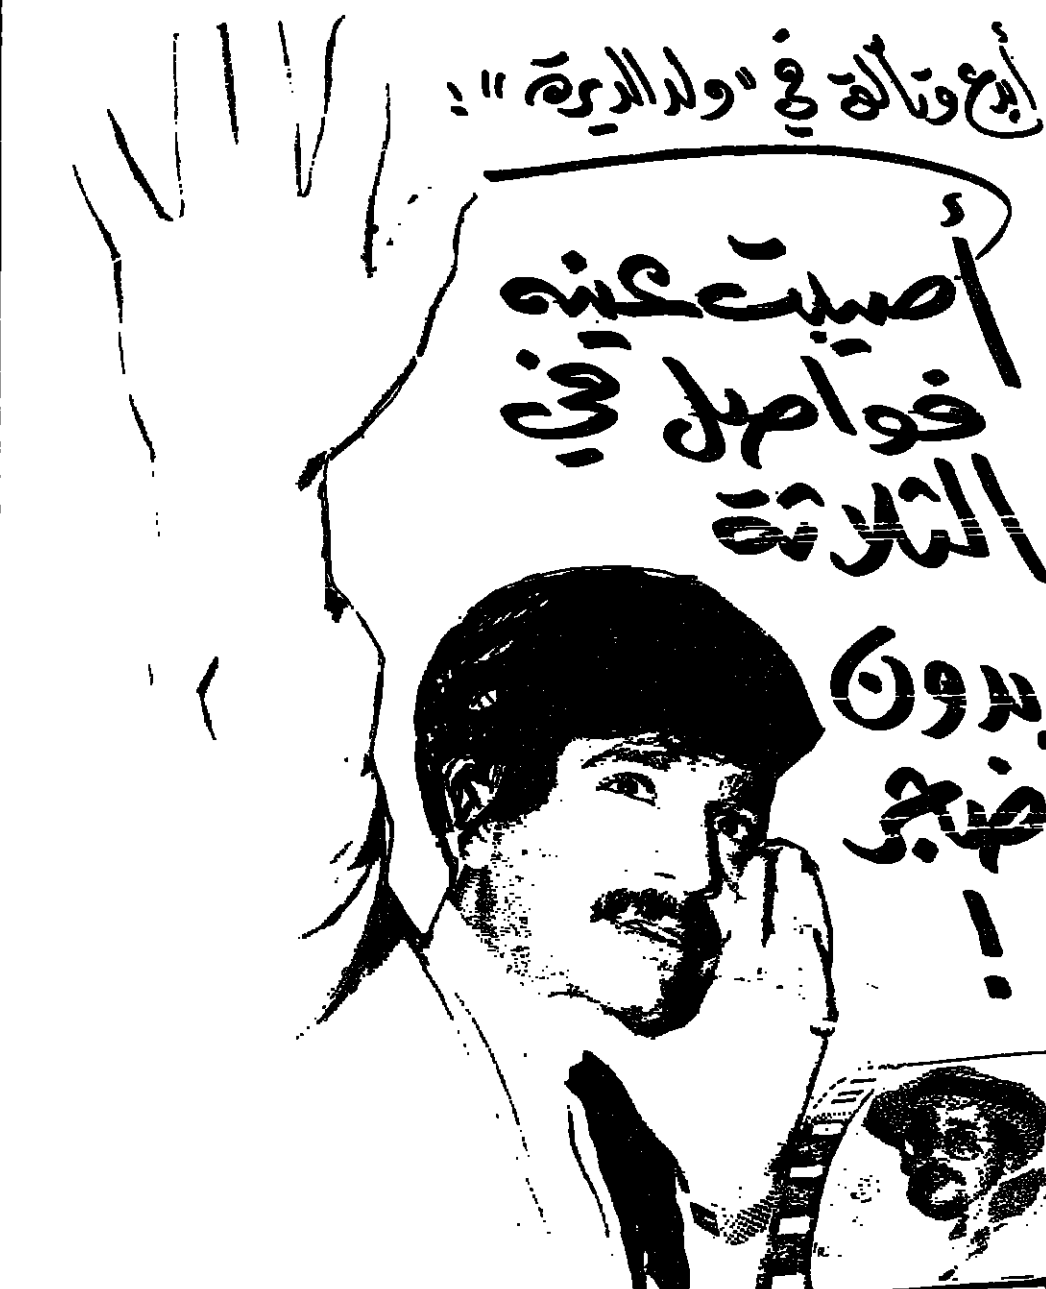 أبدع وتألق في "ولد الديرة" :
أصيبت عينه
فواصل في
الثلاثة
بدون
ضجر
!